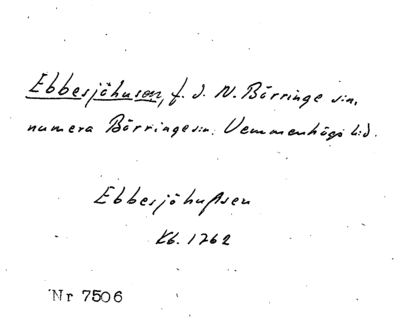 Ebbesjöhusen, f. d. N. Börringe sn,
numera Börringe sn. Vemmenhögs hd.
Ebbesjöhußen
Kb. 1762
Nr 7506